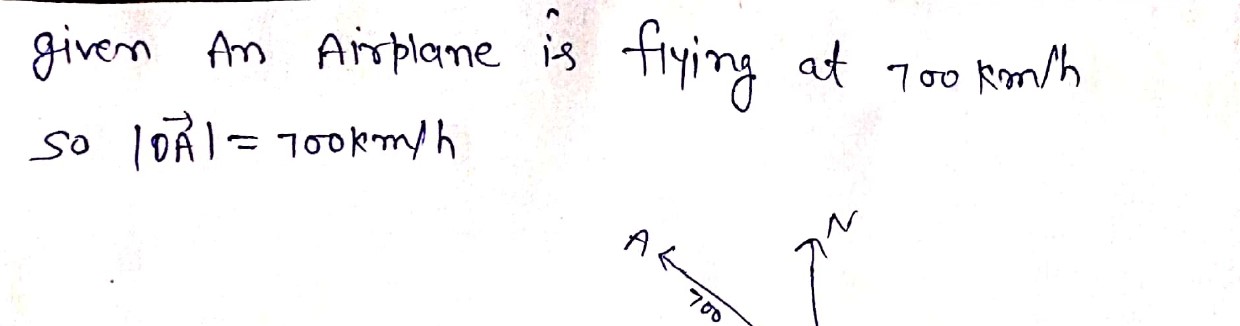 given An Airplane is flying at 700 km/h
so |OA⃗| = 700km/h
A N
700